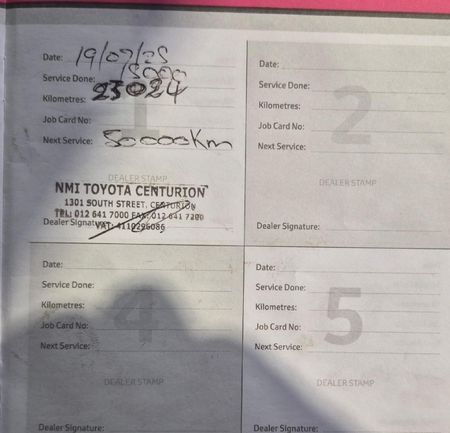 Date: 19/07/25
Service Done: 15000
Kilometres: 23024
Job Card No:
Next Service: 50000km
1
DEALER STAMP
NMI TOYOTA CENTURION
1301 SOUTH STREET, CENTURION
TEL: 012 641 7000 FAX: 012 641 7200
Dealer Signature:
VAT: 4110296086
Date:
Service Done:
Kilometres:
Job Card No:
Next Service:
2
DEALER STAMP
Dealer Signature:
Date:
Service Done:
Kilometres:
Job Card No:
Next Service:
4
DEALER STAMP
Dealer Signature:
Date:
Service Done:
Kilometres:
Job Card No:
Next Service:
5
DEALER STAMP
Dealer Signature: